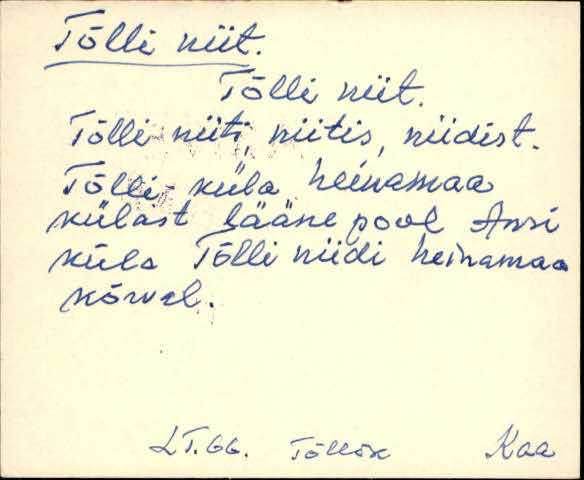 Tõlli niit.
Tõlli niit.
Tõlli niiti, niitis, niidist.
Tõlli küla heinamaa
külast lääne pool Ansi
küla Tõlli niidi heinamaa
kõrval.
LT. 66. Tõllõk Kaa